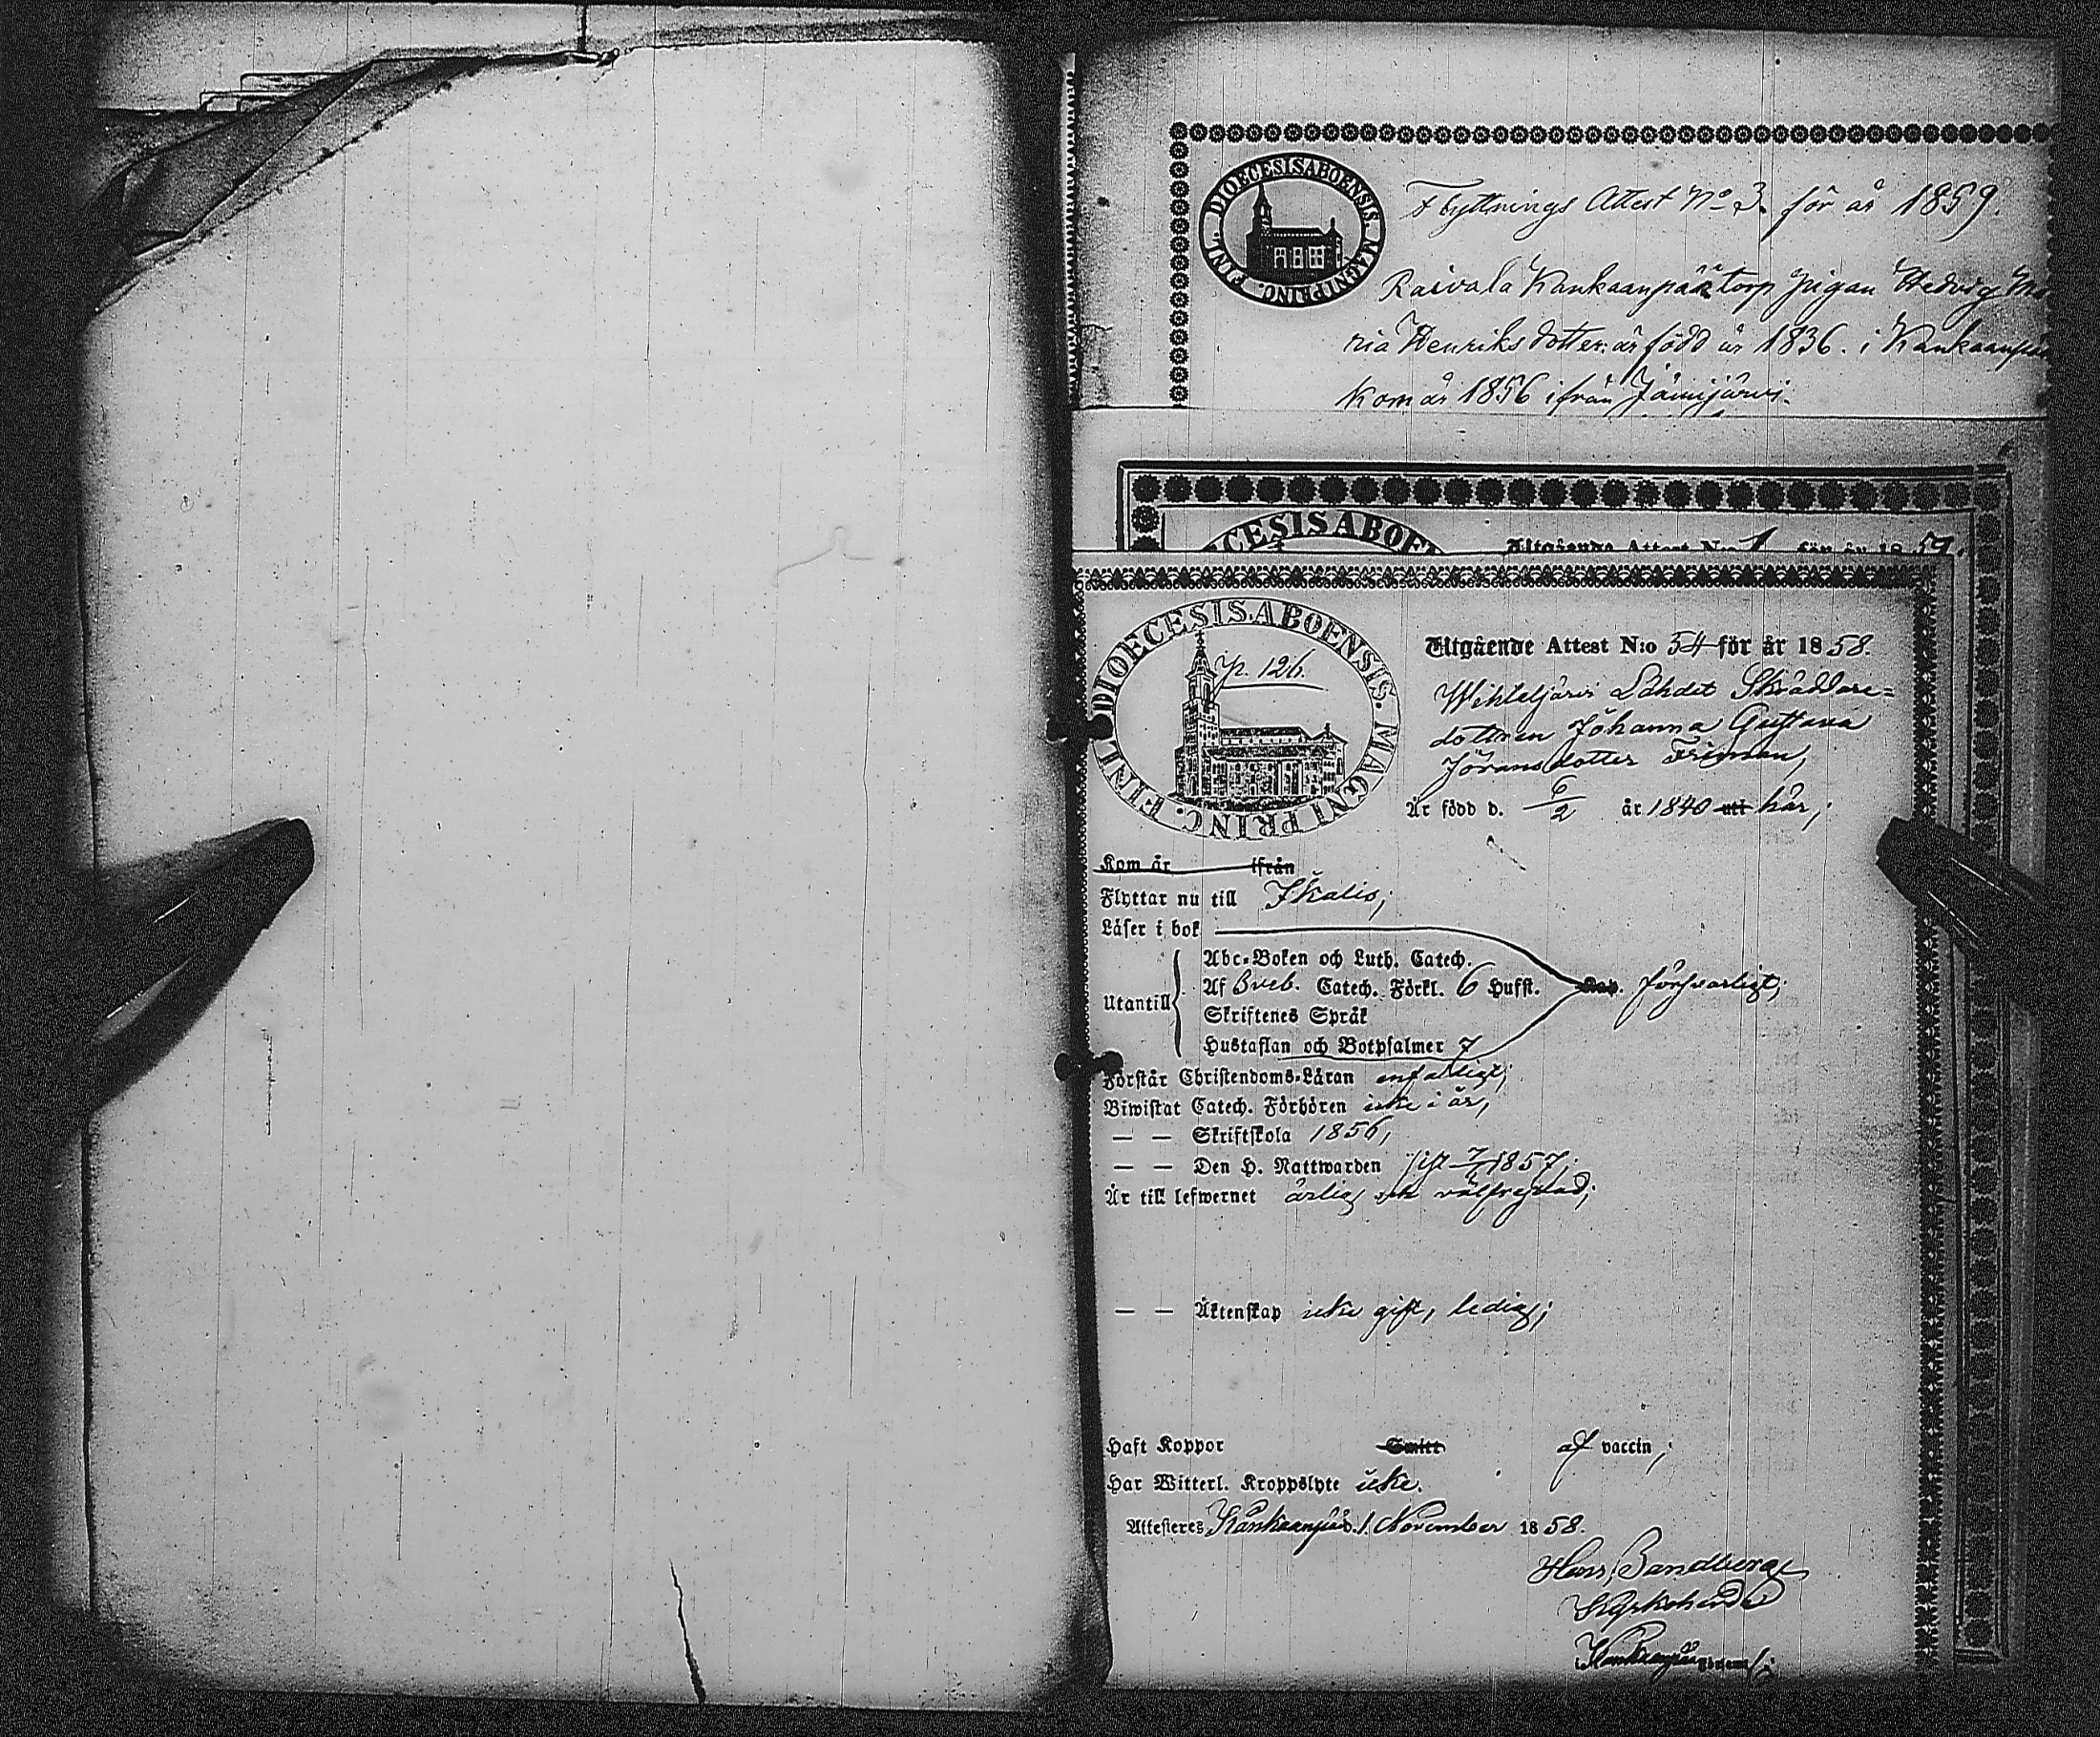 DIOECESIS ABOENSIS. MAGNI PRINC. FINL.
Flyttnings Attest No 3. för år 1859.
Raivala Kankaanpää torp pigan Hedvig Ma
ria Henriksdotter: är född år 1836. i Kankaanpää
Kom år 1856 ifrån Jämijärvi.
CESIS ABOEN
Utgående Attest N:o 1 för år 1859.
DIOECESIS ABOENSIS. MAGNI PRINC. FINL.
p. 126.
Utgående Attest N:o 54 för år 1858.
Wihteljärvi Lähdet Skräddare=
dottren Johanna Gustava
Jöransdotter Friman,
Är född d. 6/2 år 1840 uti här;
Kom år ifrån
Flyttar nu till Ikalis;
Läser i bok
Utantill
Abc-Boken och Luth. Catech.
Af Sveb. Catech. Förkl. 6 Hufst. försvarligt;
Skriftenes Språk
Hustaflan och Botpsalmer 7
Förstår Christendoms-Läran enfaldigt;
Biwistat Catech. Förhören icke i år,
— — Skriftskola 1856,
— — Den H. Nattwarden sist 1857;
Är till lefwernet ärlig och välfrejdad;
— — Äktenskap icke gift, ledig;
Haft Koppor Smitt af vaccin;
Har Witterl. Kroppslyte icke.
Attesteras Kankaanpää d. 1 November 1858.
Hans Sandberg
Kyrkoherde
Kankaanpää